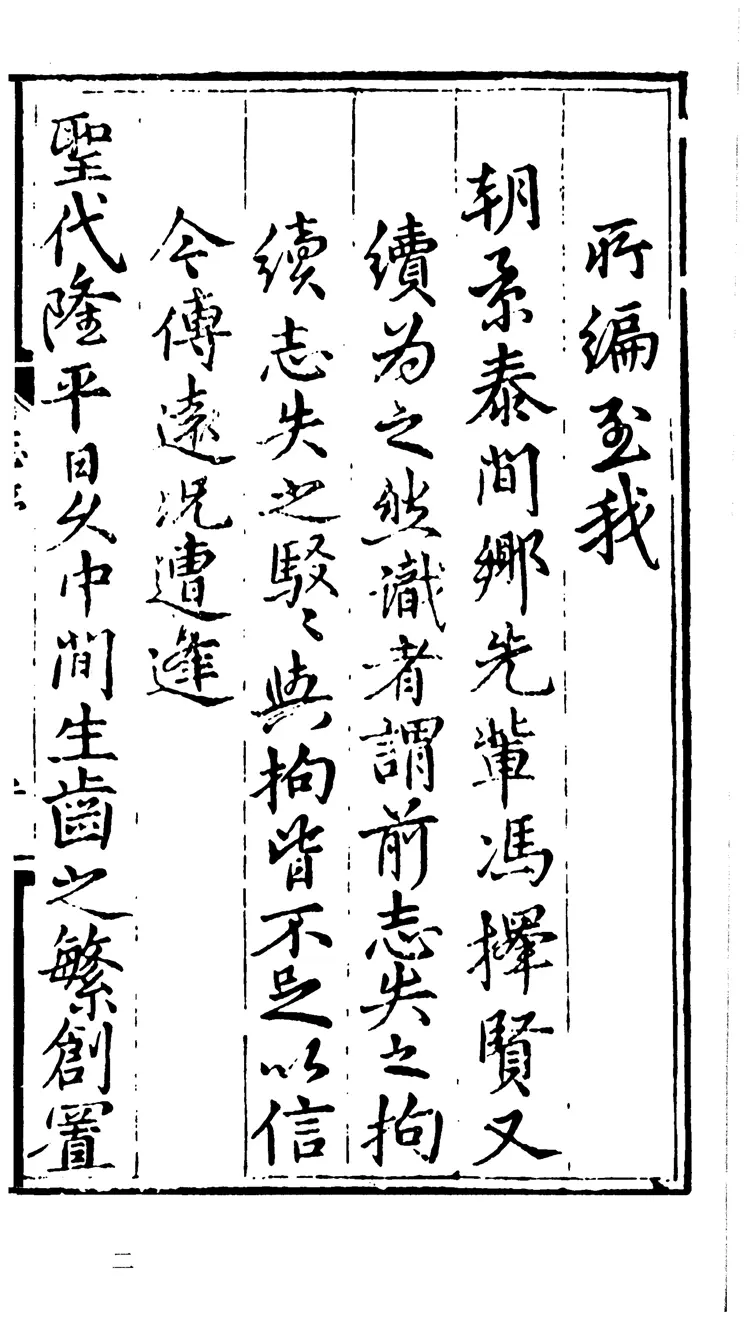 所編至我
朝景泰間鄉先軰馮擇賢又
續為之然識者謂前志失之拘
續志失之駁〻與拘皆不足以信
今傳遠況遭逢
聖代隆平日久中間生齒之繁創置
二